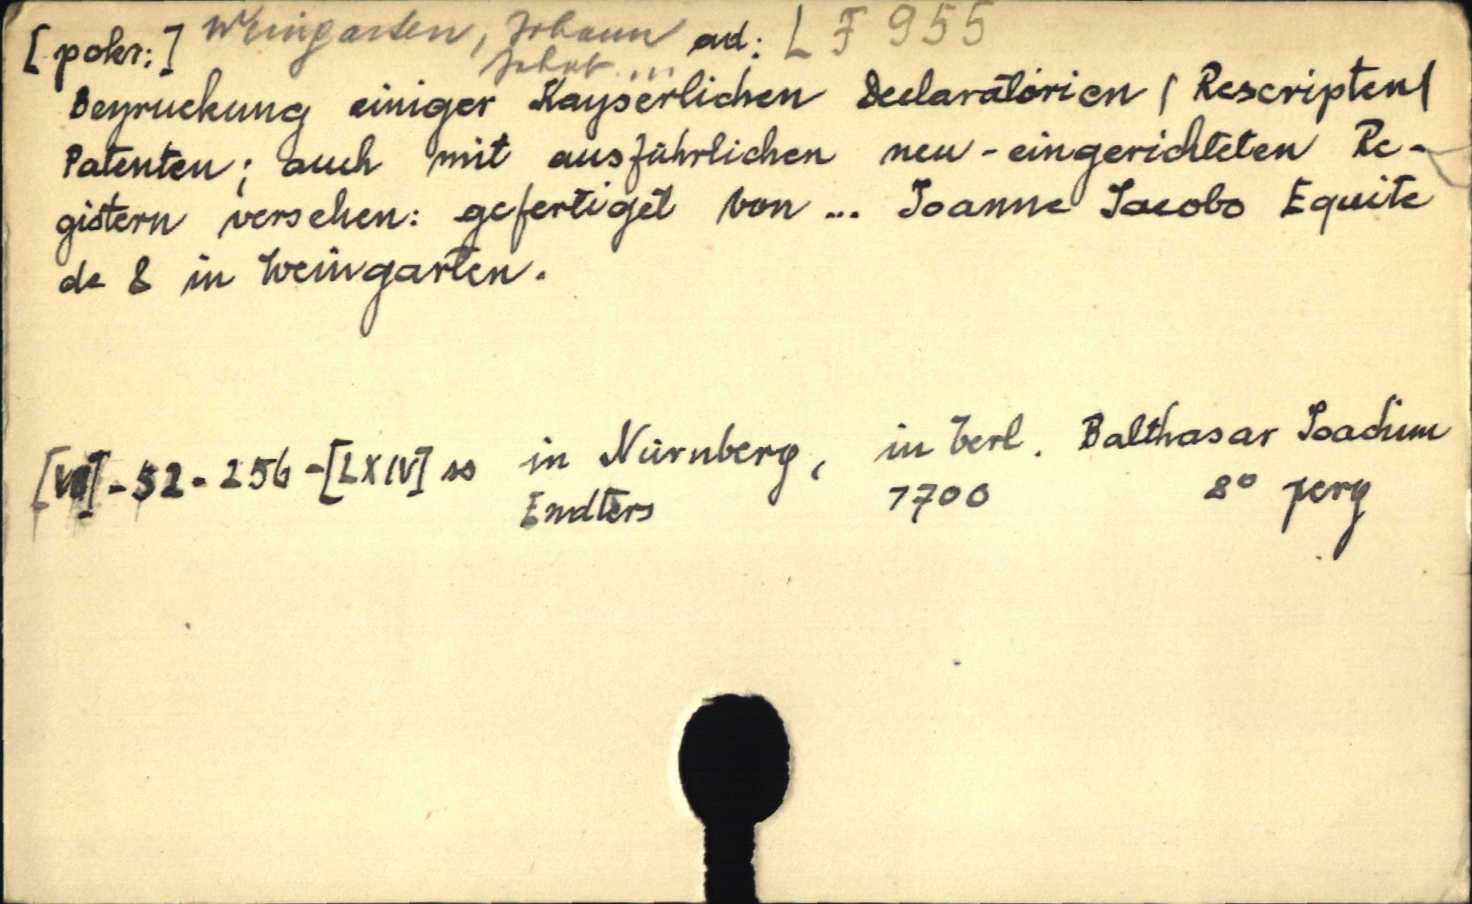 [pokr:] Weingarten, Johann ad: L F 955
Jakob ...
Beyruckung einiger Kayserlichen Declaratorien / Rescripten /
Patenten; auch mit ausführlichen neu-eingerichteten Re-
gistern versehen: gefertiget von ... Joanne Jacobo Equite
de & in Weingarten.
[VII] - 52 - 256 - [LXIV] ss in Nürnberg, in Verl. Balthasar Joachim
Endters 1700 8° perg